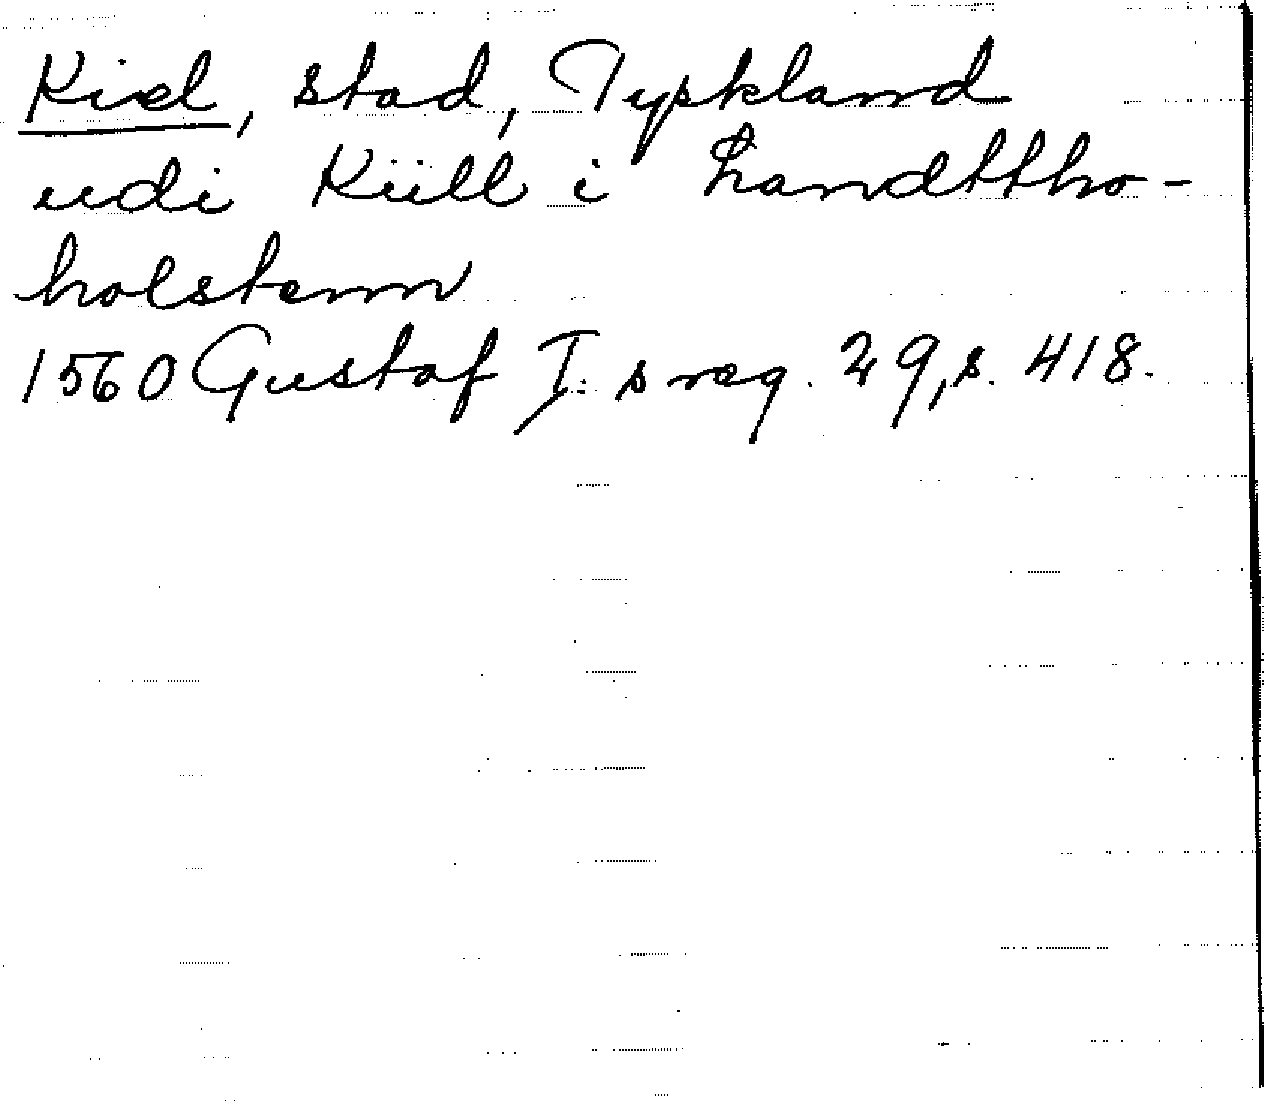 Kiel, stad, Tyskland
udi Kiill i Landttho-
holstenn
1560 Gustaf I:s reg. 29, s. 418.